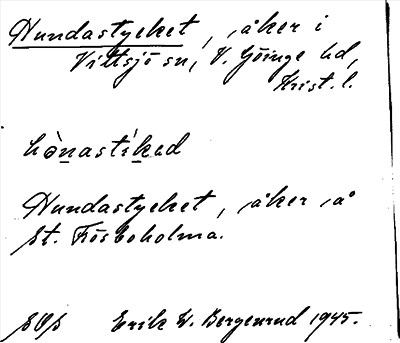 Hundastycket, åker i
Vittsjö sn, V. Göinge hd,
Krist. l.
hònastikəd
Hundastycket, åker å
St. Frösboholma.
Erik W. Bergenrud 1945.